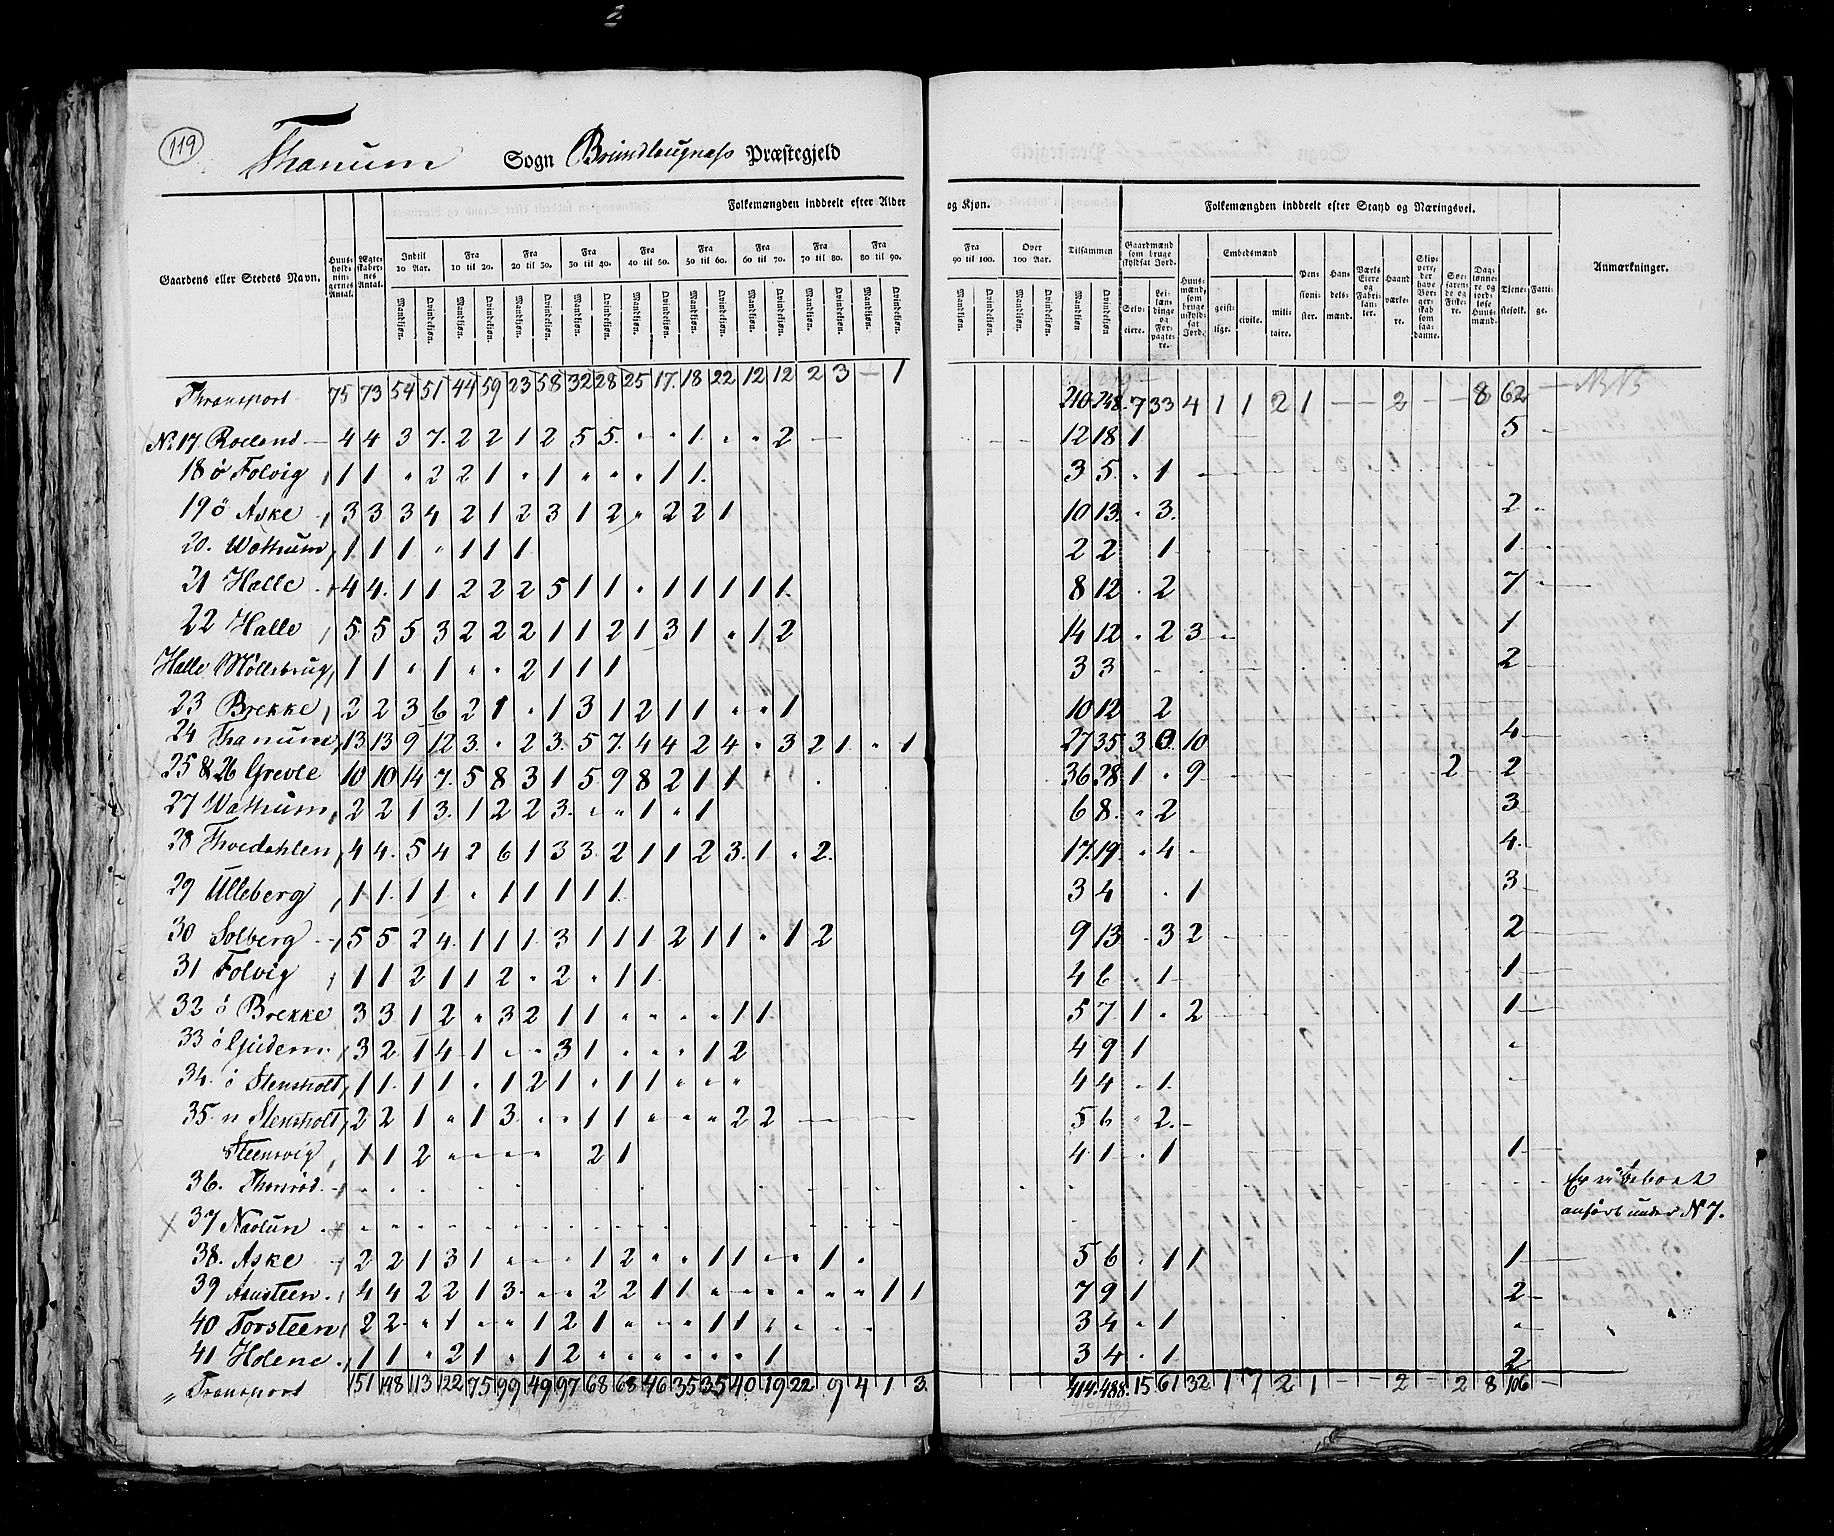 2
119
Thanum Sogn Brundlaugness Præstegjeld
Sogn
Folkemængden inddeelt efter Alder og Kjøn. Folkemængden inddeelt efter Stand og Næringsvei.
Gaardens eller Stedets Navn. Huusholdningernes Antal. Ægteskabernes Antal. Indtil 10 Aar. Fra 10 til 20. Fra 20 til 30. Fra 30 til 40. Fra 40 til 50. Fra 60 til 70. Fra 70 til 80. Fra 80 til 90. Fra 90 til 100. Over 100 Aar. Tilsammen Gaardmænd som bruge skyldsat Jord. Huusmænd, som bruge uskyldsat Jord. Embedsmænd Pensionister. Handelsmænd. Haandværkere. Tjenestefolk. Fattige. Anmærkninger.
Mandkjøn. Qvindekjøn. Mandkjøn. Qvindekjøn. Mandkjøn. Qvindekjøn. Mandkjøn. Qvindekjøn. Mandkjøn. Qvindekjøn. Mandkjøn. Qvindekjøn. Mandkjøn. Qvindekjøn. Mandkjøn. Qvindekjøn. Mandkjøn. Qvindekjøn. Mandkjøn. Qvindekjøn. Mandkjøn. Qvindekjøn. Selveiere. geistlige. civile. militaire.
Transport 75 73 54 51 44 59 23 58 32 28 25 17. 18 22 12 12 2 3 — 1 210 248. 7 33 4 1 1 2 1 — — 2 — — 8 62 —
No 17 Roeland — 4 4 3 7. 2 2 1 2 5 5. " " 1. " " 2 — 12 18 1 5 -
18 ö Folvig 1 1 " 2 2 1 " 1 " " " 1 1. 3 5. " 1
19 ö Aske 3 3 3 4 2 1 2 3 1 2 " 2 2 1 10 13. " 3. 2
20. Wattrum, 1 1 1 " 1 1 1 2 2 1 1
21 Halle 4 4. 1 1 2 2 2 5 1 1 " 1 1 1 1 1. 8 12 . 2 7
22 Halle 5 5 5 3 2 2 2 1 1 2 1 3 1 " 1 2 14 12 " 2 3 1
Halle Möllebrug, 1 1 " 1 " " 2 1 1 1 3 3 2
23 Brekke, 2 2 3 6 2 1 " 1 3 1 2 1 1 " " 1 10 12 2
24 Thanum, 13 13 9 12 3. " 2 3. 5 7. 4 4 2 4 " 3 2 1 " 1 27 35 3 10 4
25 & 26 Grevle 10 10 14 7. 5 8 3 1 5 9 8 2 1 1 36 28 1 " 9 2 2
27 Wattrum, 2 2 1 3. 1 2 2 3. " " 1 " 1 6 8. " 2 3
28 Thvedahlen, 4 4. 5 4 2 6 1 3 3. 2 1 1 2 3. 1 " 2. 17. 19. " 4 4.
29 Ulleberg 1 1. 1 1 " 1 1 1 1 1 3 4 . 1 3
30 Solberg 5 5 2 4. 1 1 1. 3 1 1 1 2 1 1 " 1 2 9 13 3 2 2
31 Folvig 1 1 2 1 1 2 " 2 " 1 1 4 6 " 1 1
32 ö Brekke 3 3 1 2 " 3 2 1 1 " " " " 1 1 5 7 1 " 2 1
33 ö 3 2 1 4 1 " " 3 1 " " " 1 2 4 9 1
34. ö Stensholt, 1 1. 1 1 " 1 2 1 " 1 1 " " " 4 4 " 1.
35. n Stensholt, 2 2 1 " 1 3. " " 1 1 " " " 2 2 5 6 " 2.
Steensvig, 1 1 2 " " " " 2 1 4 1 " 1 1
36. 
37 Naolun anført under N 7.
38. Aske 2 2 1 3 1 " " " 1 2 " " 1 1 " " 1 " 5 6 " 1 1 1
39 4 4 2 2 1 3. " " 2 2 1 1 " " " " " " 1 1 7 9 1 2
40 Torsteen 2 2 " 1 " " 1 2 1 " " " 1 1 3 4 " 1
41 Holene 1 1 " 2 1 " 1 2 " " " " " " 1 3 4 " 1 2
" Transport 151 148 113 122 75 99 49 97 68 68 46 35 35 40 19 22 9 4 1 3. 414. 488. 15 61 32 1 7 2 1 — — 2 — 2 8 106